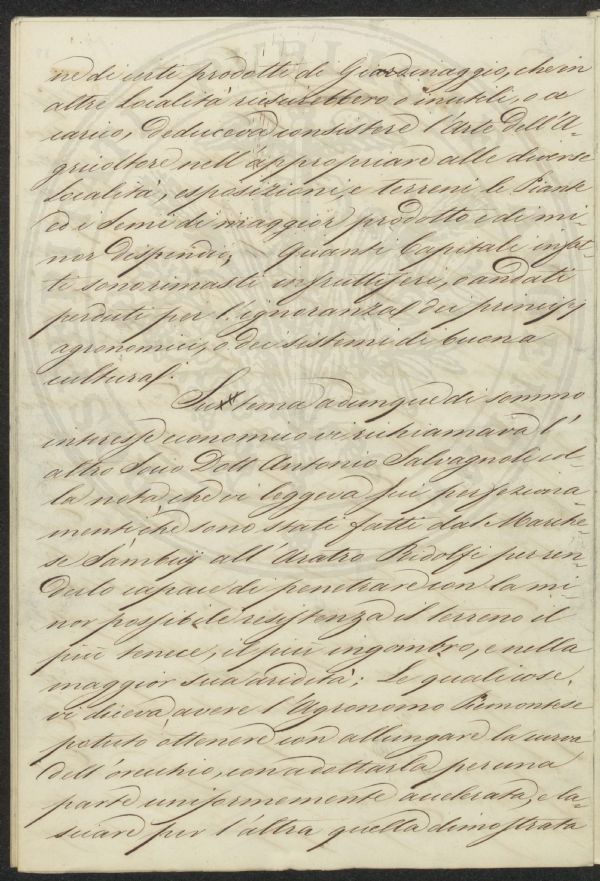 ne di certi prodotti di Giardinaggio, che in
altre località riescirebbero o inutili, o a
carico, deduceva consistere l'Arte dell'A-
gricoltore nell'appropriare alle diverse
località, esposizioni, e terreni le Piante
ed i Semi di maggior prodotto e di mi-
nor dispendio, Quanti Capitali infat-
ti sono rimasti infruttiferi, o andati
perduti per l'ignoranza dei principj
agronomici, o dei sistemi di buona
cultura!
Su tema adunque di sommo
interesse economico vi richiamava l'
altro Socio Dott Antonio Salvagnoli col-
la nota che vi leggeva sui perfeziona-
menti che sono stati fatti dal Marche-
se Sambuy all'Aratro Ridolfi per ren-
derlo capace di penetrare con la mi-
nor possibile resistenza il terreno il
più tenace, il più ingombro, e nella
maggior sua aridità; Le quali cose,
vi diceva, avere l'Agronomo Piemontese
potuto ottenere con allungare la curva
dell'orecchio, con adottarla per una
parte uniformemente accelerata, e la-
sciare per l'altra quella dimostrata